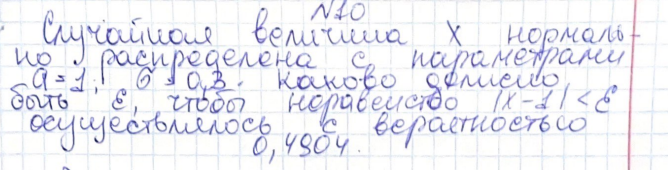 №10
Случайная величина X нормаль-
но распределена с параметрами
a = 1; σ = 0,3. каково должно
быть ε, чтобы неравенство |x-1| < ε
осуществлялось с вероятностью
0,4904.